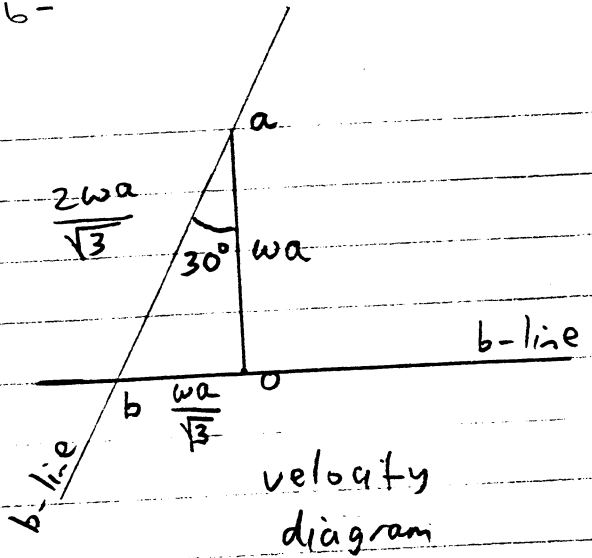 b-
a
2ωa
√3
30°
ωa
b-line
b
ωa
√3
o
b-line
velocity
diagram